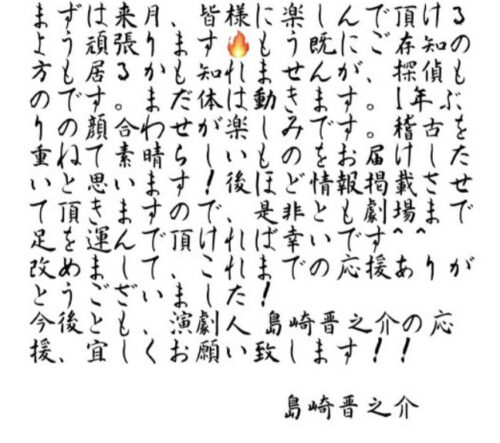 まずは来月、皆様に楽しんで頂ける
ようは頑張ります🔥もう既にご存知の
方も居るかも知れませんが、探偵も
のです。まだ体は動きます。1年ぶ
りの顔合わせが楽しみです。稽古を
重ねて素晴らしいものをお届けした
いと思います！後、ほど情報掲載させ
て頂きますので、是非とも劇場まで
足を運んで頂ければ幸いです^ ^
改めまして、これまでの応援ありが
とうございました！
今後とも、演劇人 島崎晋之介の応
援、宜しくお願い致します！！
島崎晋之介